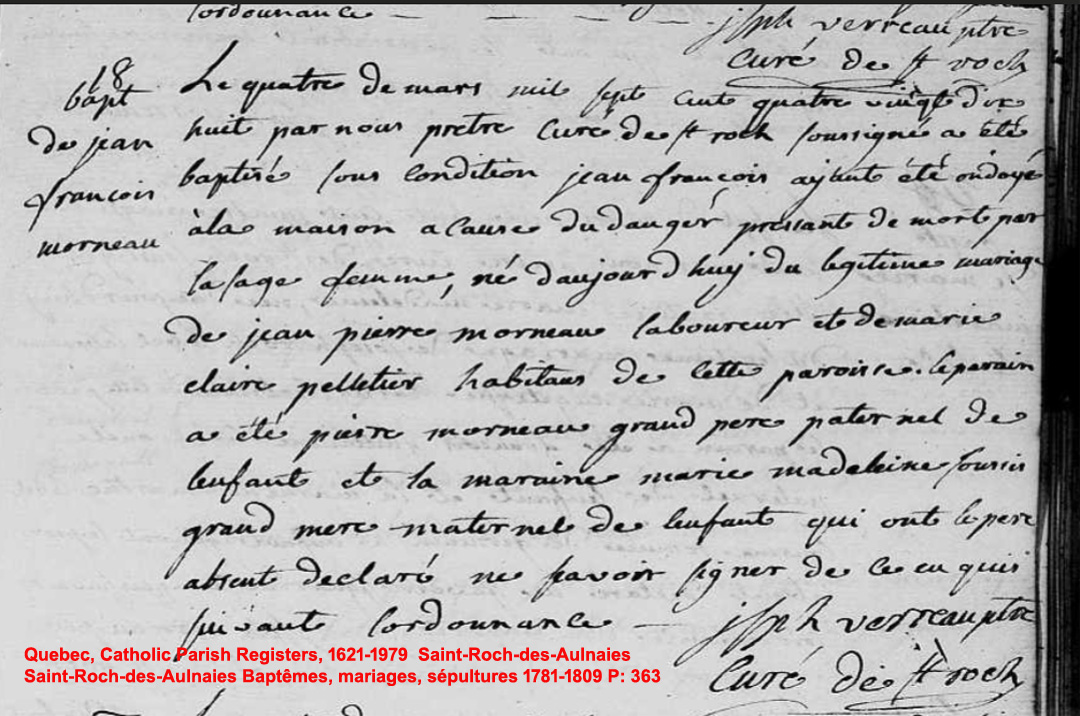 lordonnance — jsph verreau ptre
Curé de st roch
18
bapt
de jean
francois
morneau
Le quatre de mars mil sept cent quatre vingt dix
huit par nous pretre Curé de st roch soussigné a été
baptisé sous condition jean françois ayant été ondoyé
à la maison a cause du danger pressant de mort par
la sage femme, né daujourdhuy du legitime mariage
de jean pierre morneau laboureur et de marie
claire pelletier habitans de cette paroisse. le parain
a été pierre morneau grand pere paternel de
lenfant et la maraine marie madeleine
grand mere maternel de lenfant qui ont le pere
absent declaré ne savoir signer de ce enquis
suivant lordonnance — jsph verreau ptre
Curé de st roch
Quebec, Catholic Parish Registers, 1621-1979 Saint-Roch-des-Aulnaies
Saint-Roch-des-Aulnaies Baptêmes, mariages, sépultures 1781-1809 P: 363